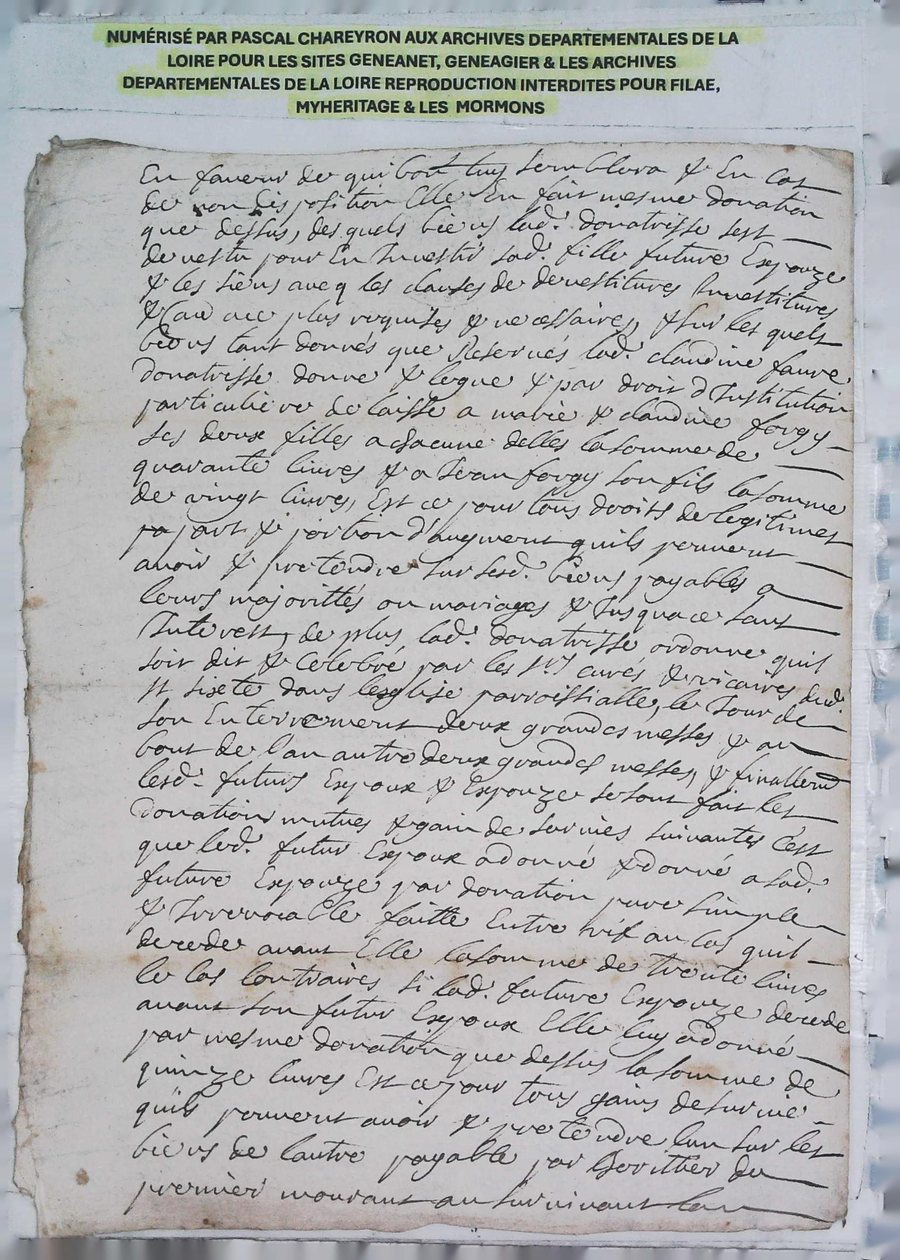 NUMÉRISÉ PAR PASCAL CHAREYRON AUX ARCHIVES DEPARTEMENTALES DE LA
LOIRE POUR LES SITES GENEANET, GENEAGIER & LES ARCHIVES
DEPARTEMENTALES DE LA LOIRE REPRODUCTION INTERDITES POUR FILAE,
MYHERITAGE & LES MORMONS
En faveur de qui bon luy semblera & En cas
de non disposition Elle En fait mesme donation
que dessus, des quels biens lad. donatrisse sest
devestu pour En Investir sad. fille future Espouze
& les siens avecq les clauses de devestitures Investitures
& plus requises & necessaires, & sur les quels
biens tant donnés que Reservés lad. claudine faure
donatrisse donne & legue & par droit d'Institution
particuliere delaisse a marie & claudine forgy
ses deux filles a chacune delles la somme de
quarante livres & a Jean forgy son fils la somme
de vingt livres, Est ce pour tous droits de legitimes
part & portion d'augment quils peuvent
avoir & pretendre sur sesd. biens payables a
leurs majorittés ou mariages & Jusqua ce sans
Interest, de plus lad. donatrisse ordonne quil
soit dit & celebré par les Srs curés & vicaires dud.
St sixte dans leglise parroissialle, le Jour de
son Enterrement deux grandes messes & au
bout de l'an autre deux grandes messes, & finallemt
lesd. futurs Espoux & Espouze se sont fait les
donation mutues & gain de survies suivantes C'est
que led. futur Espoux a donné & donné a lad.
future Espouze par donation pure simple
& Irrevocable faitte Entre vifs au cas quil
decede avant Elle la somme de trente livres
le cas contraires si lad. future Espouze decede
avant son futur Espoux Elle luy a donné
par mesme donation que dessus la somme de
quinze livres Est ce pour tous gains de survie
quils peuvent avoir & pretendre lun sur les
biens de lautre payable par Lheritier du
premier mourant au survivant